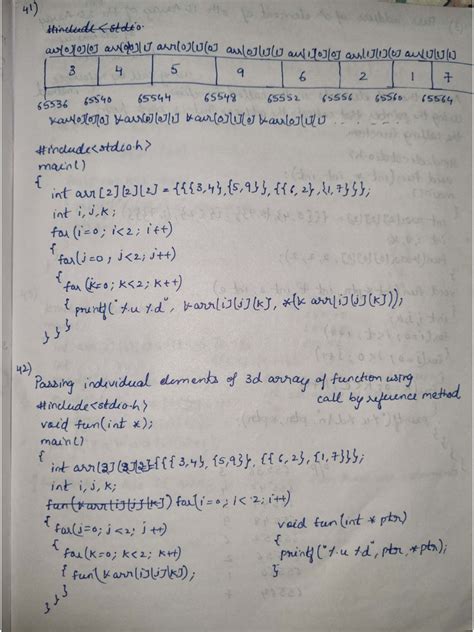 41)
#include<stdio.
arr[0][0][0] arr[0][0][1] arr[0][1][0] arr[0][1][1] arr[1][0][0] arr[1][1][1]
3 4 5 9 6 2 1 7
65536 65540 65544 65548 65552 65556 65560 65564
&arr[0][0][0] &arr[0][0][1] &arr[0][1][0] &arr[0][1][1] . . . . .
#include<stdio.h>
main()
{
int arr[2][2][2] = {{{3,4},{5,9}},{{6,2},{1,7}}};
int i, j, k;
for(i=0; i<2; i++)
{ for(j=0; j<2; j++)
{ for(k=0; k<2; k++)
{ printf("%u %d", &arr[i][j][k], *(&arr[i][j][k]));
} } }
42)
Passing individual elements of 3d array of function using
call by reference method
#include<stdio.h>
void fun(int *);
main()
{
int arr[2][2][2]={{{3,4},{5,9}},{{6,2},{1,7}}};
int i, j, k;
fun(&arr[i][j][k]) for(i=0; i<2; i++)
{ for(j=0; j<2; j++) void fun(int * ptr)
{ for(k=0; k<2; k++) { printf("%u %d", ptr, *ptr);
{ fun(&arr[i][j][k]); }
} } }